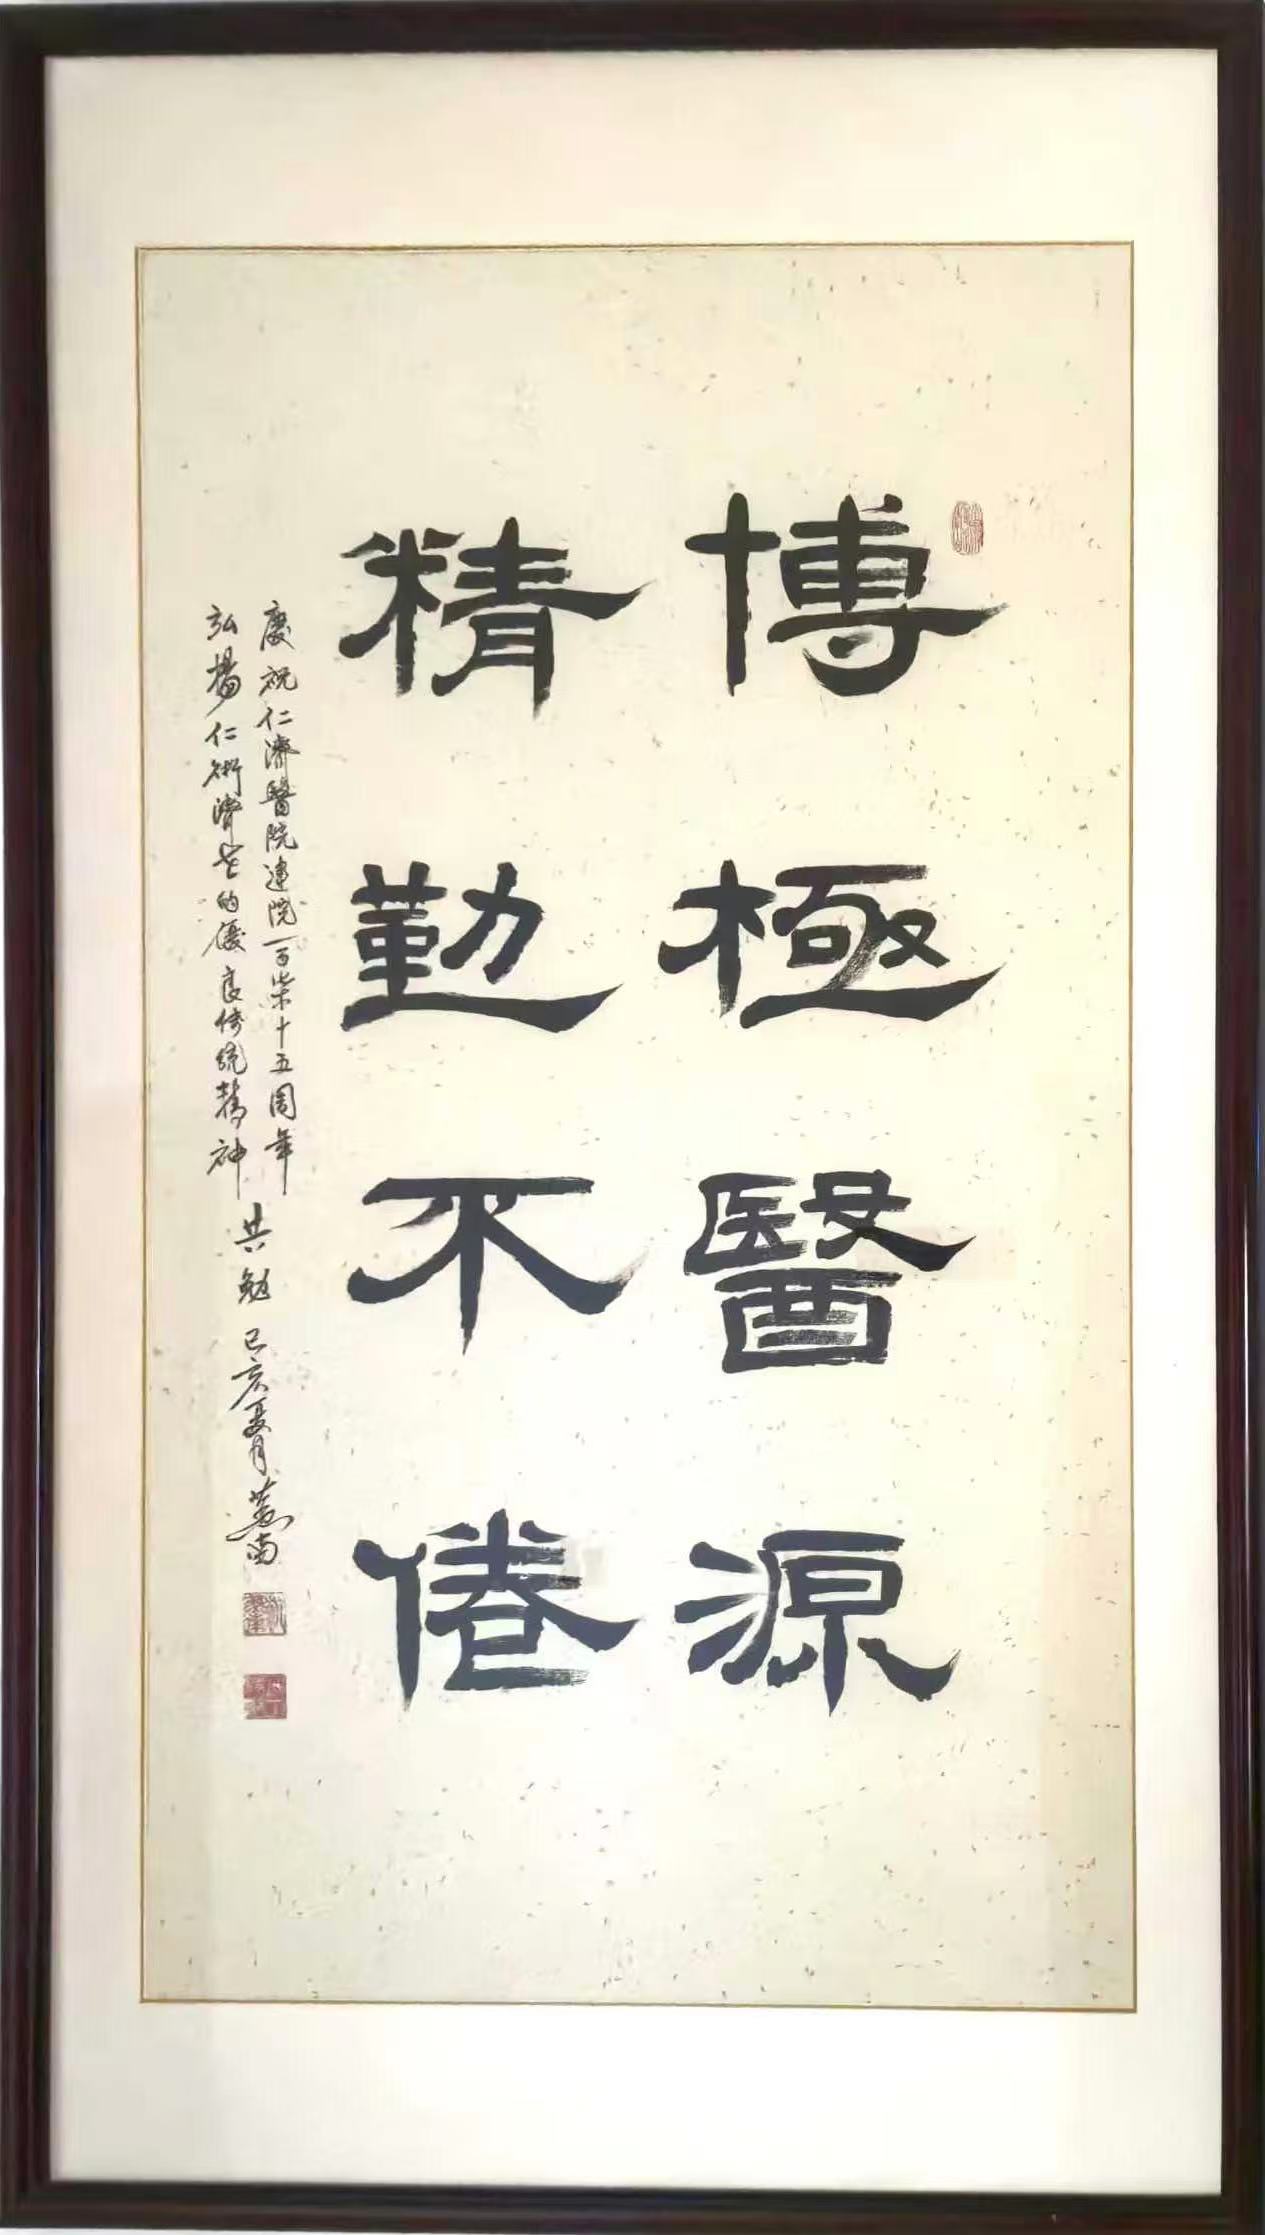 博極醫源
精勤不倦
慶祝仁濟醫院建院一百柒十五周年
弘揚仁術濟世的優良傳統精神
共勉 己亥夏月